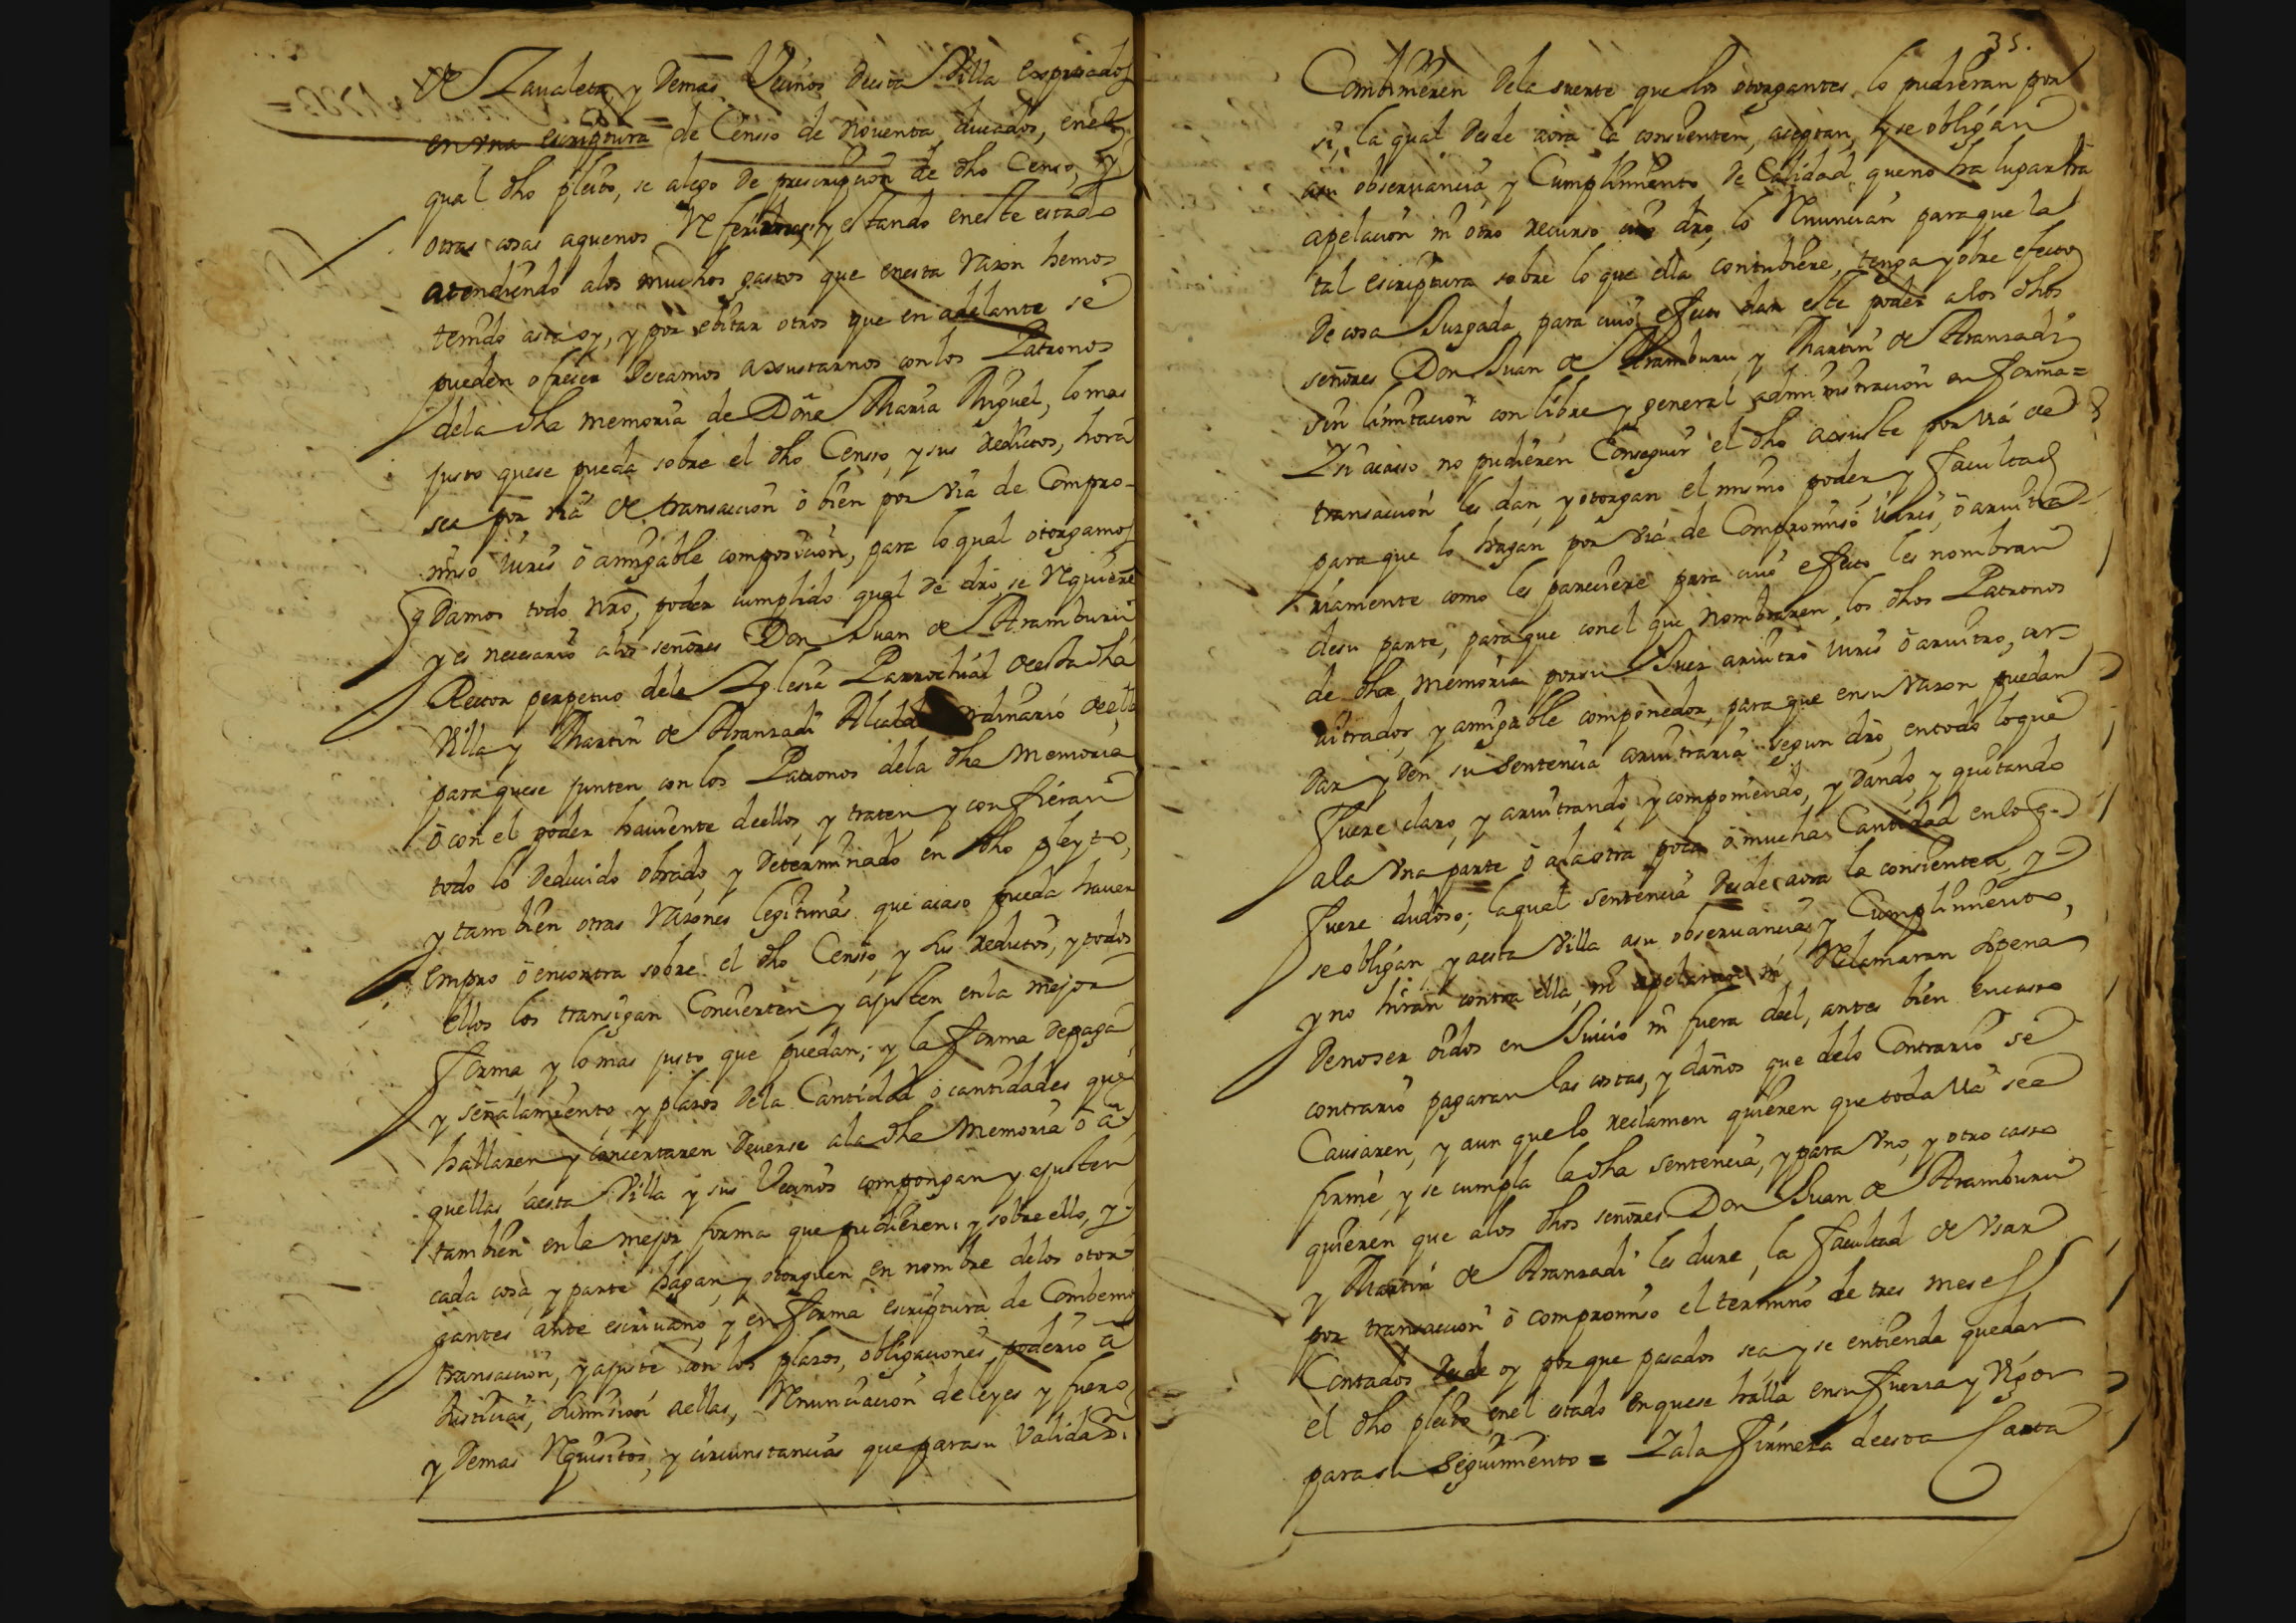 de Zaualeta, y Demas Vecinos deesta Villa expresados
en vna escriptura = de Censso de nouenta ducados, enel
qual dho pleito, se alego de prescripcion de dho Censo, y
otras cosas aquenos Referimos; y estando eneste estado
atendiendo alos muchos gastos que enesta razon hemos
tenido asta oy, y por ebitar otros que en adelante se
pueden ofrecer Deseamos axustarnos conlos Patronos
dela dha memoria de Doña Maria Miguel, lo mas
justo quese pueda sobre el dho Censso, y sus Reditos, hora
sea por via de transaccion ò bien por via de Compro-
miso iuris ò amigable composicion, para lo qual otorgamos
q Damos todo nro, poder cumplido qual de dro, se Requiere
y es necesario alos señores Don Juan de Aramburu
Rector perpetuo dela Iglesia Parrochial deesta dha
Villa y Martin de Aranzadi Alcalde ordinario deella
para quese junten con los Patronos dela dha Memoria
ò con el poder hauiente deellos, y traten y confieran
todo lo deducido obrado, y Determinado en dho pleyto,
y tambien otras razones legitimas que acaso pueda hauer
enpro ò encontra sobre el dho Censso, y sus Reditos, y todos
ellos los transigan Concierten y ajusten enla mejor
forma, y lo mas justo que puedan; y la forma depaga
y señalamiento, y plazos dela Cantidad ò cantidades que
hallaren y concertaren Deuerse ala dha Memoria ò a
quellas aesta Villa y sus Vecinos compongan y ajusten
tambien enla mejor forma que pudieren, y sobre ello, y
cada cosa, y parte hagan, y otorguen en nombre delos otor-
gantes ante escriuano, y en forma escriptura de Combenio
transaccion, y ajuste con los plazos, obligaciones, poderio a
Justicias, sumision aellas, Renunciacion de leyes y fuero
y Demas Requisitos, y circunstancias que parasu Validad
35.
Combinieren Dela suerte que los otorgantes lo pudieran por
si, la qual desde aora la consienten, aceptan, y se obligan
asu obseruancia, y Cumplimiento De Calidad queno ha lugar tra
apelacion ni otro recurso cuio dro, lo Renuncian paraque la
tal escriptura sobre lo que ella contubiere, tenga y obre efectos
De cosa Juzgada, para cuio efecto dan este poder alos dhos
señores Don Juan de Aramburu y Martin de Aranzadi
sin limitacion con libre y general administracion en forma=
Y si acaso no pudieren Conseguir el dho axuste por via de
transaccion les dan y otorgan el mismo poder y facultad
para que lo hagan por via de Compromiso iuris, ò aruitra-
riamente como les pareciere para cuio efecto les nombran
desu parte, para que conel que nombraren, los dhos Patronos
de dha Memoria por su Juez aruitro iuris ò aruitro, ar-
uitrador, y amigable componedor, para que ensu razon puedan
Dar y Den su sentencia aruitraria segun dro, entodo loque
fuere claro, y aruitrando, y componiendo, y Dando, y quitando
ala vna parte ò ala otra poca ò mucha Cantidad enlo q
fuere dudoso; laqual sentencia desde aora la consienten, y
se obligan y aesta Villa asu obseruancia, y Cumplimiento,
y no hiran contra ella, ni apelaran ni Reclamaran sopena
Denoser oidos en Juicio ni fuera deel, antes bien encaso
contrario pagaran las costas, y daños que delo Contrario se
Causaren, y aun quelo reclamen quieren que toda via sea
firme, y se cumpla la dha sentencia, y para vno, y otro caso
quieren que alos dhos señores Don Juan de Aramburu
y Martin de Aranzadi les dure, la facultad de vsar
por transaccion ò compromiso el termino de tres meses
Contados desde oy porque pasados sea, y se entienda quedar
el dho pleito, enel estado enquese halla ensu fuerza y Vigor
para su Seguimiento = Y ala firmeza deesta Carta